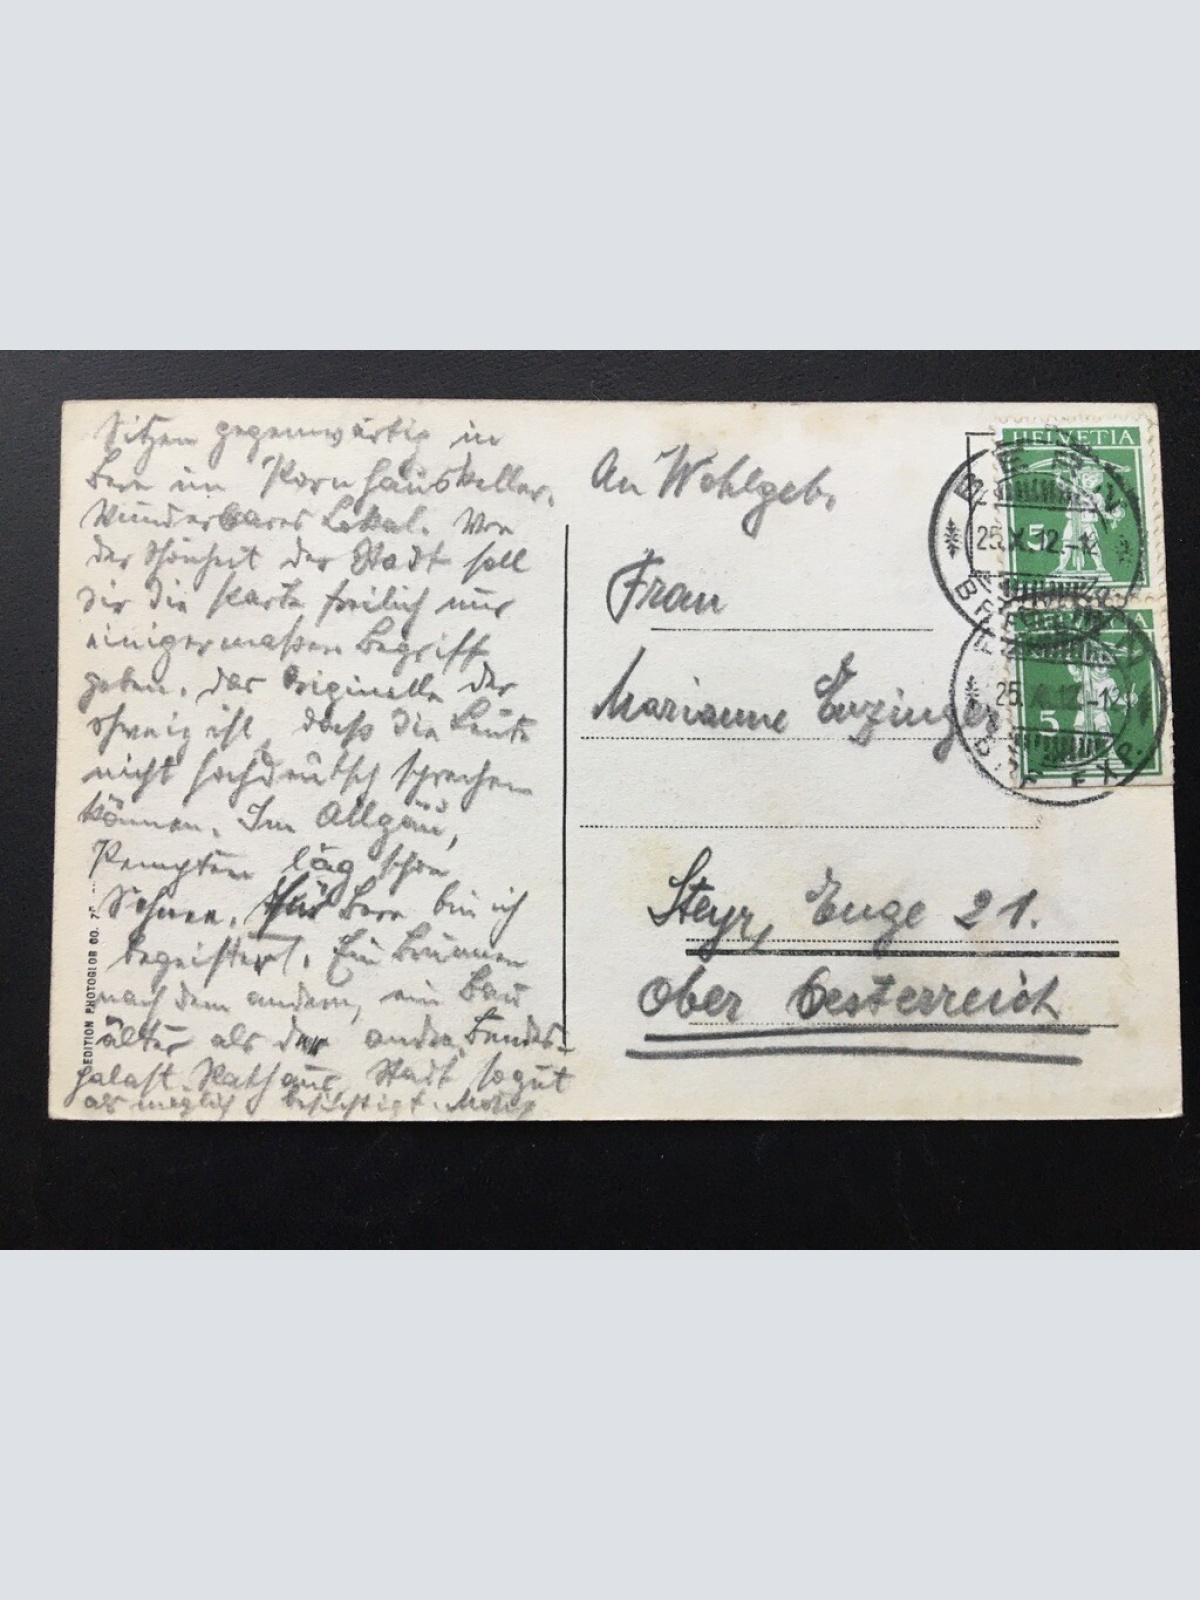 Sitzen gegenwärtig in
Bern im Kornhauskeller.
Wunderbares Lokal. Von
der Schönheit der Stadt soll
Dir die Karte freilich nur
einigermaßen Begriff
geben. Das Originelle der
Schweiz ist, dass die Leute
nicht hochdeutsch sprechen
können. Im Allgäu,
Kempten lag schon
Schnee. Für Bern bin ich
begeistert. Ein Brunnen
nach dem andern, ein Bau
älter als der andre. Bundes-
palast, Rathaus, Stadt so gut
als möglich besichtigt.
EDITION PHOTOGLOB CO.
An Wohlgeb.
Frau
Marianne Enzinger
Steyr, Enge 21.
Ober Oesterreich
HELVETIA
5
BERN
25.X.12.-12
BRIEFEXP.
5
25.X.12.-12
BRIEF EXP.